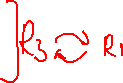 ] R3 ⇌ R1